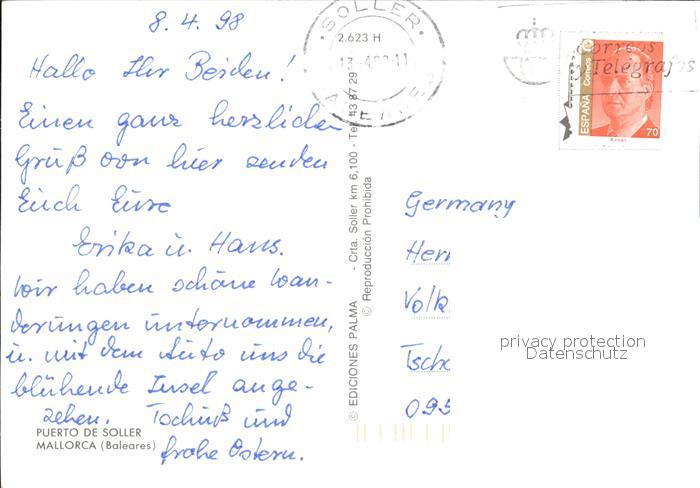 8.4.98
Hallo Ihr Beiden!
Einen ganz herzlichen
Gruß von hier senden
Euch Eure
Erika u. Hans.
Wir haben schöne Wan-
derungen unternommen,
u. mit dem Auto uns die
blühende Insel ange-
sehen. Tschüß und
frohe Ostern.
PUERTO DE SOLLER
MALLORCA (Baleares)
© EDICIONES PALMA - Crta. Soller km 6,100 - Tel. 43 87 29
© Reproducción Prohibida
SOLLER
2.623 H
BALEARES
Correos
Telégrafos
ESPAÑA Correos
70
Germany
Herr
Volk
Tsch
095
privacy protection
Datenschutz